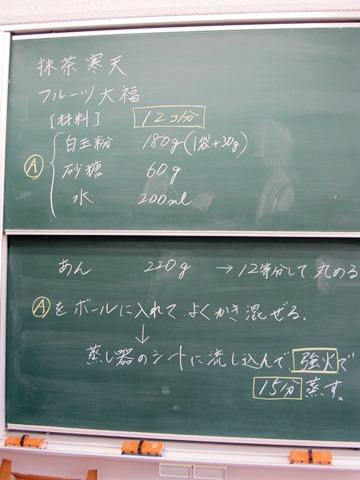 抹茶寒天
フルーツ大福
[材料] 12コ分
Ⓐ 白玉粉 180g(1袋+30g)
砂糖 60g
水 200ml
あん 220g → 12等分して丸める
Ⓐをボールに入れてよくかき混ぜる。
↓
蒸し器のシートに流し込んで、強火で
15分蒸す。